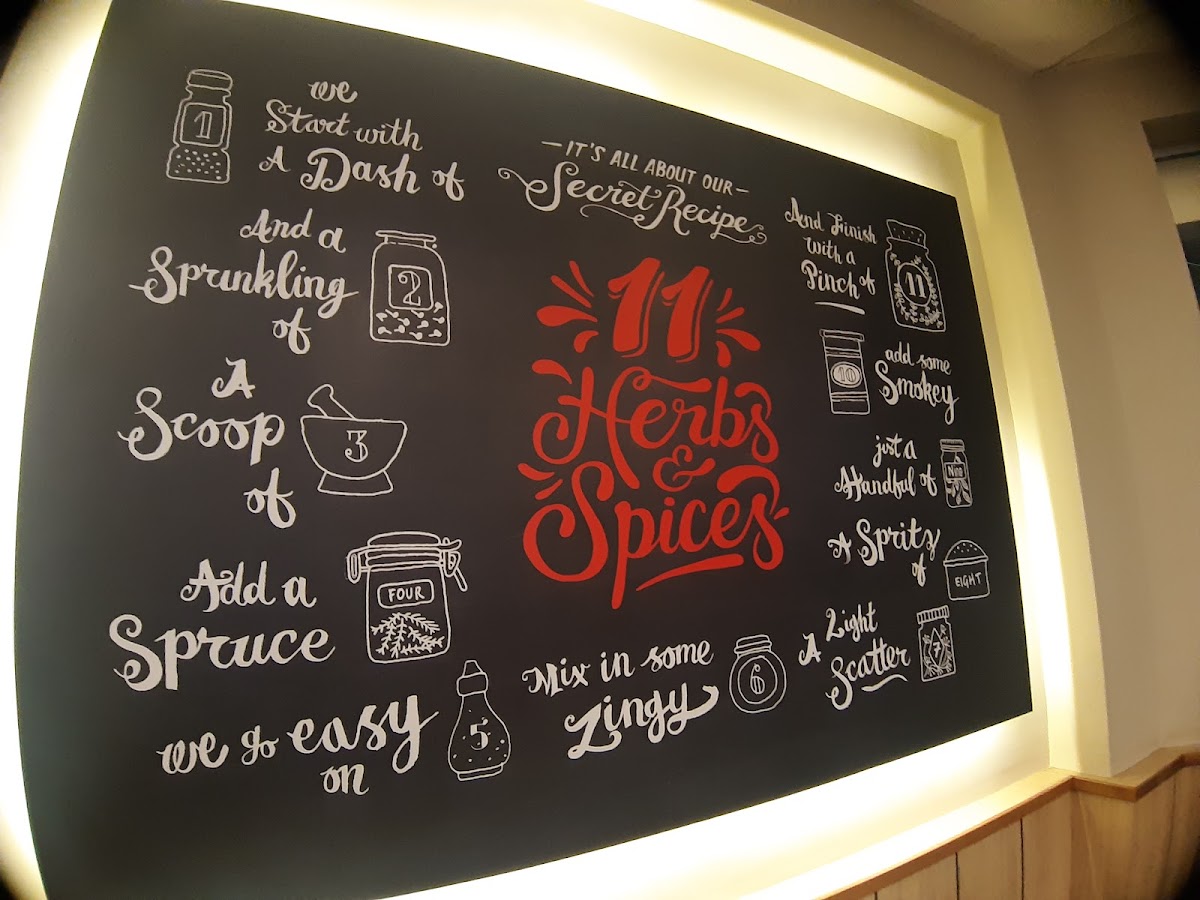 we
Start with
A Dash of
1
And a
Sprinkling
of
2
A
Scoop
of
3
Add a
Spruce
FOUR
we go easy
on
5
Mix in some
Zingy
6
A Light
Scatter
7
A Spritz
of
EIGHT
just a
Handful of
Nine
add some
Smokey
10
And Finish
with a
Pinch of
11
—IT'S ALL ABOUT OUR—
Secret Recipe
11
Herbs
&
Spices